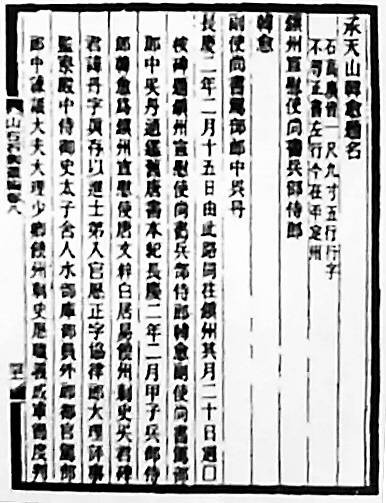 承天山韓愈題名
石高廣皆一尺九寸五行行字
不同正書左行今在平定州
鎮州宣慰使尚書兵部侍郎
韓愈
副使尚書駕部郎中吳丹
長慶二年二月十五日由此路同往鎮州其月二十日迴□
按碑題鎮州宣慰使尚書兵部侍郎韓愈副使尚書駕部
郎中吳丹通鑑舊唐書本紀長慶二年二月甲子兵部侍
郎韓愈為鎮州宣慰使唐文粹白居易饒州刺史吳君碑
君諱丹字真存以進士第入官歷正字協律郎大理評事
監察殿中侍御史太子舍人水部庫部員外郎都官駕部
郎中諫議大夫大理少卿饒州刺史歷職義成軍節度判
山右石刻叢編卷八